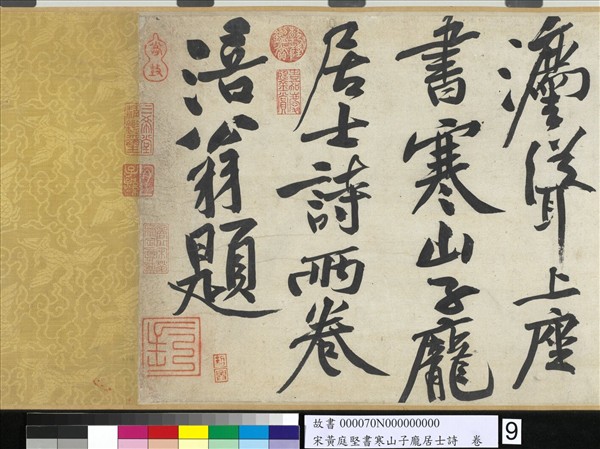 灋聳上座
書寒山子龐
居士詩兩卷
涪翁題
故書 000070N000000000
宋黃庭堅書寒山子龐居士詩 卷
9